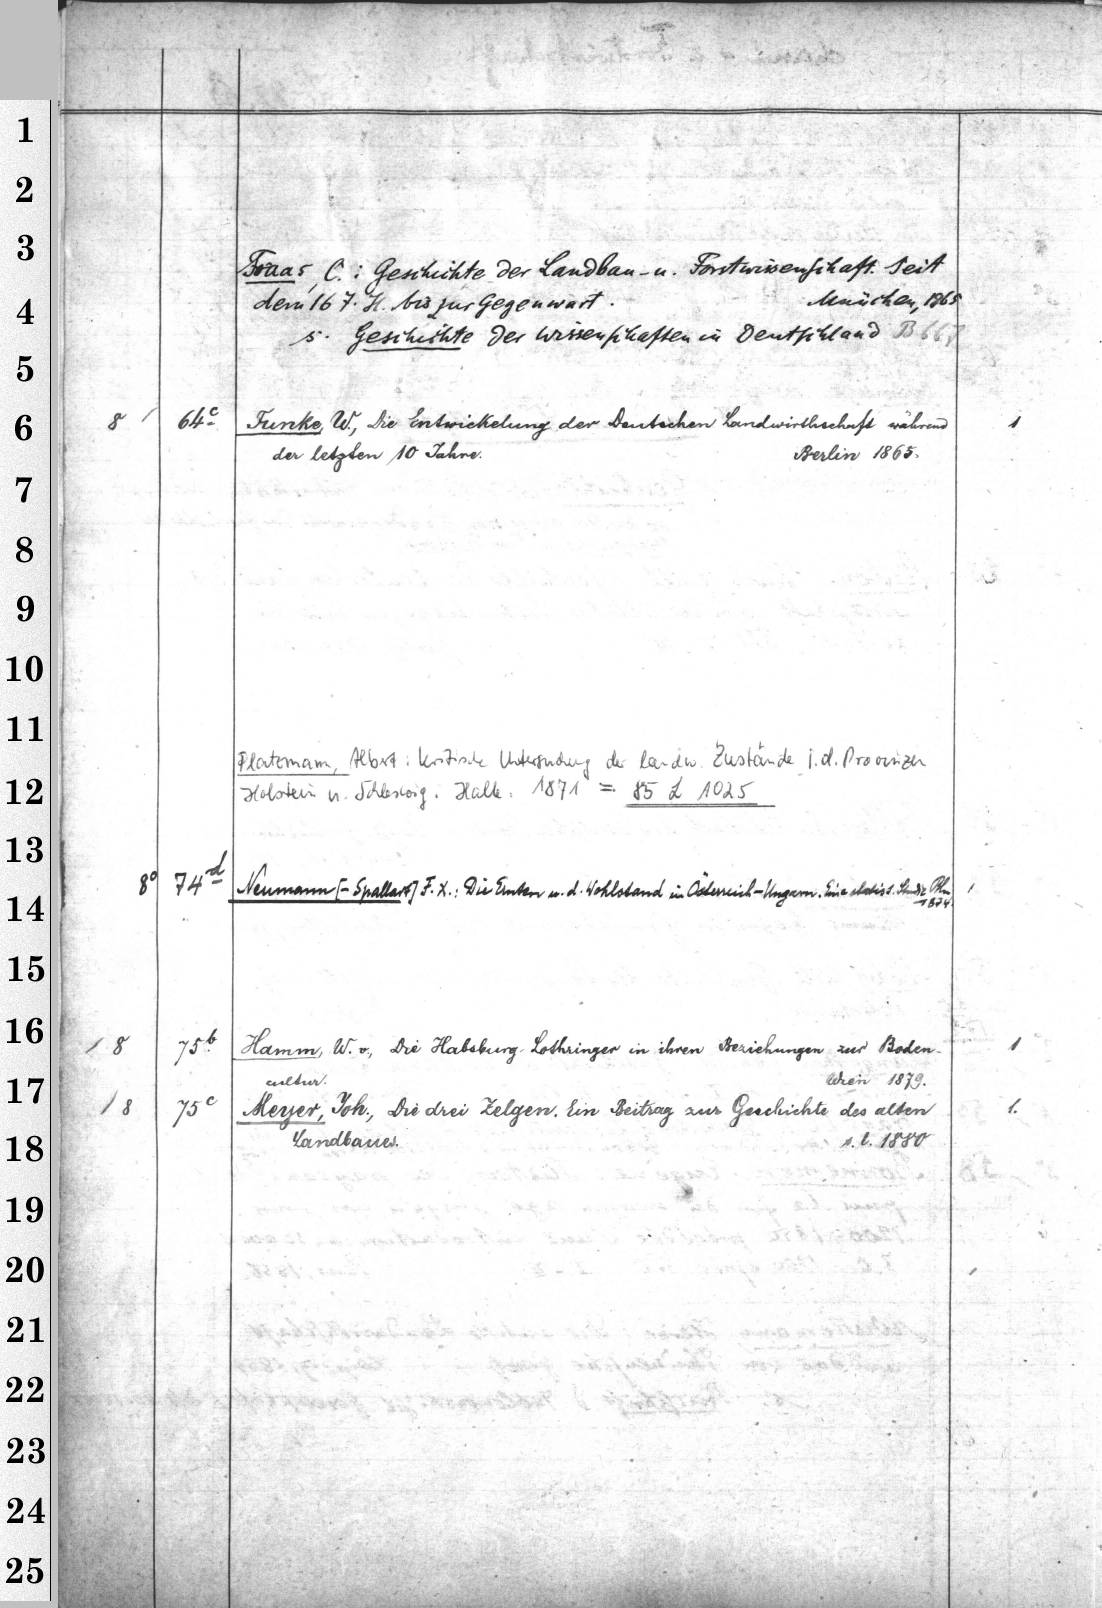 1
2
3
Fraas, C.: Geschichte der Landbau- u. Forstwissenschaft. Seit
4
dem 16 J. H. bis zur Gegenwart. München, 1865
s. Geschichte der Wissenschaften in Deutschland B 66
5
6
8 64c Funke, W., Die Entwickelung der Deutschen Landwirthschaft während 1
der letzten 10 Jahre. Berlin 1865.
7
8
9
10
11
Platzmann, Albert: Kritische Untersuchung der landw. Zustände i. d. Provinzen
12
Holstein u. Schleswig. Halle. 1871 = 85 L 1025
13
8° 74d Neumann [-Spallart] F. X.: Die Ernten u. d. Wohlstand in Österreich-Ungarn. Eine statist. Studie Bln 1
1874.
14
15
16
/ 8 75b Hamm, W. v., Die Habsburg-Lothringer in ihren Beziehungen zur Boden- 1
cultur. Wien 1879.
17
/ 8 75c Meyer, Joh., Die drei Zelgen. Ein Beitrag zur Geschichte des alten 1.
18
Landbaues. s. l. 1880
19
20
21
22
23
24
25